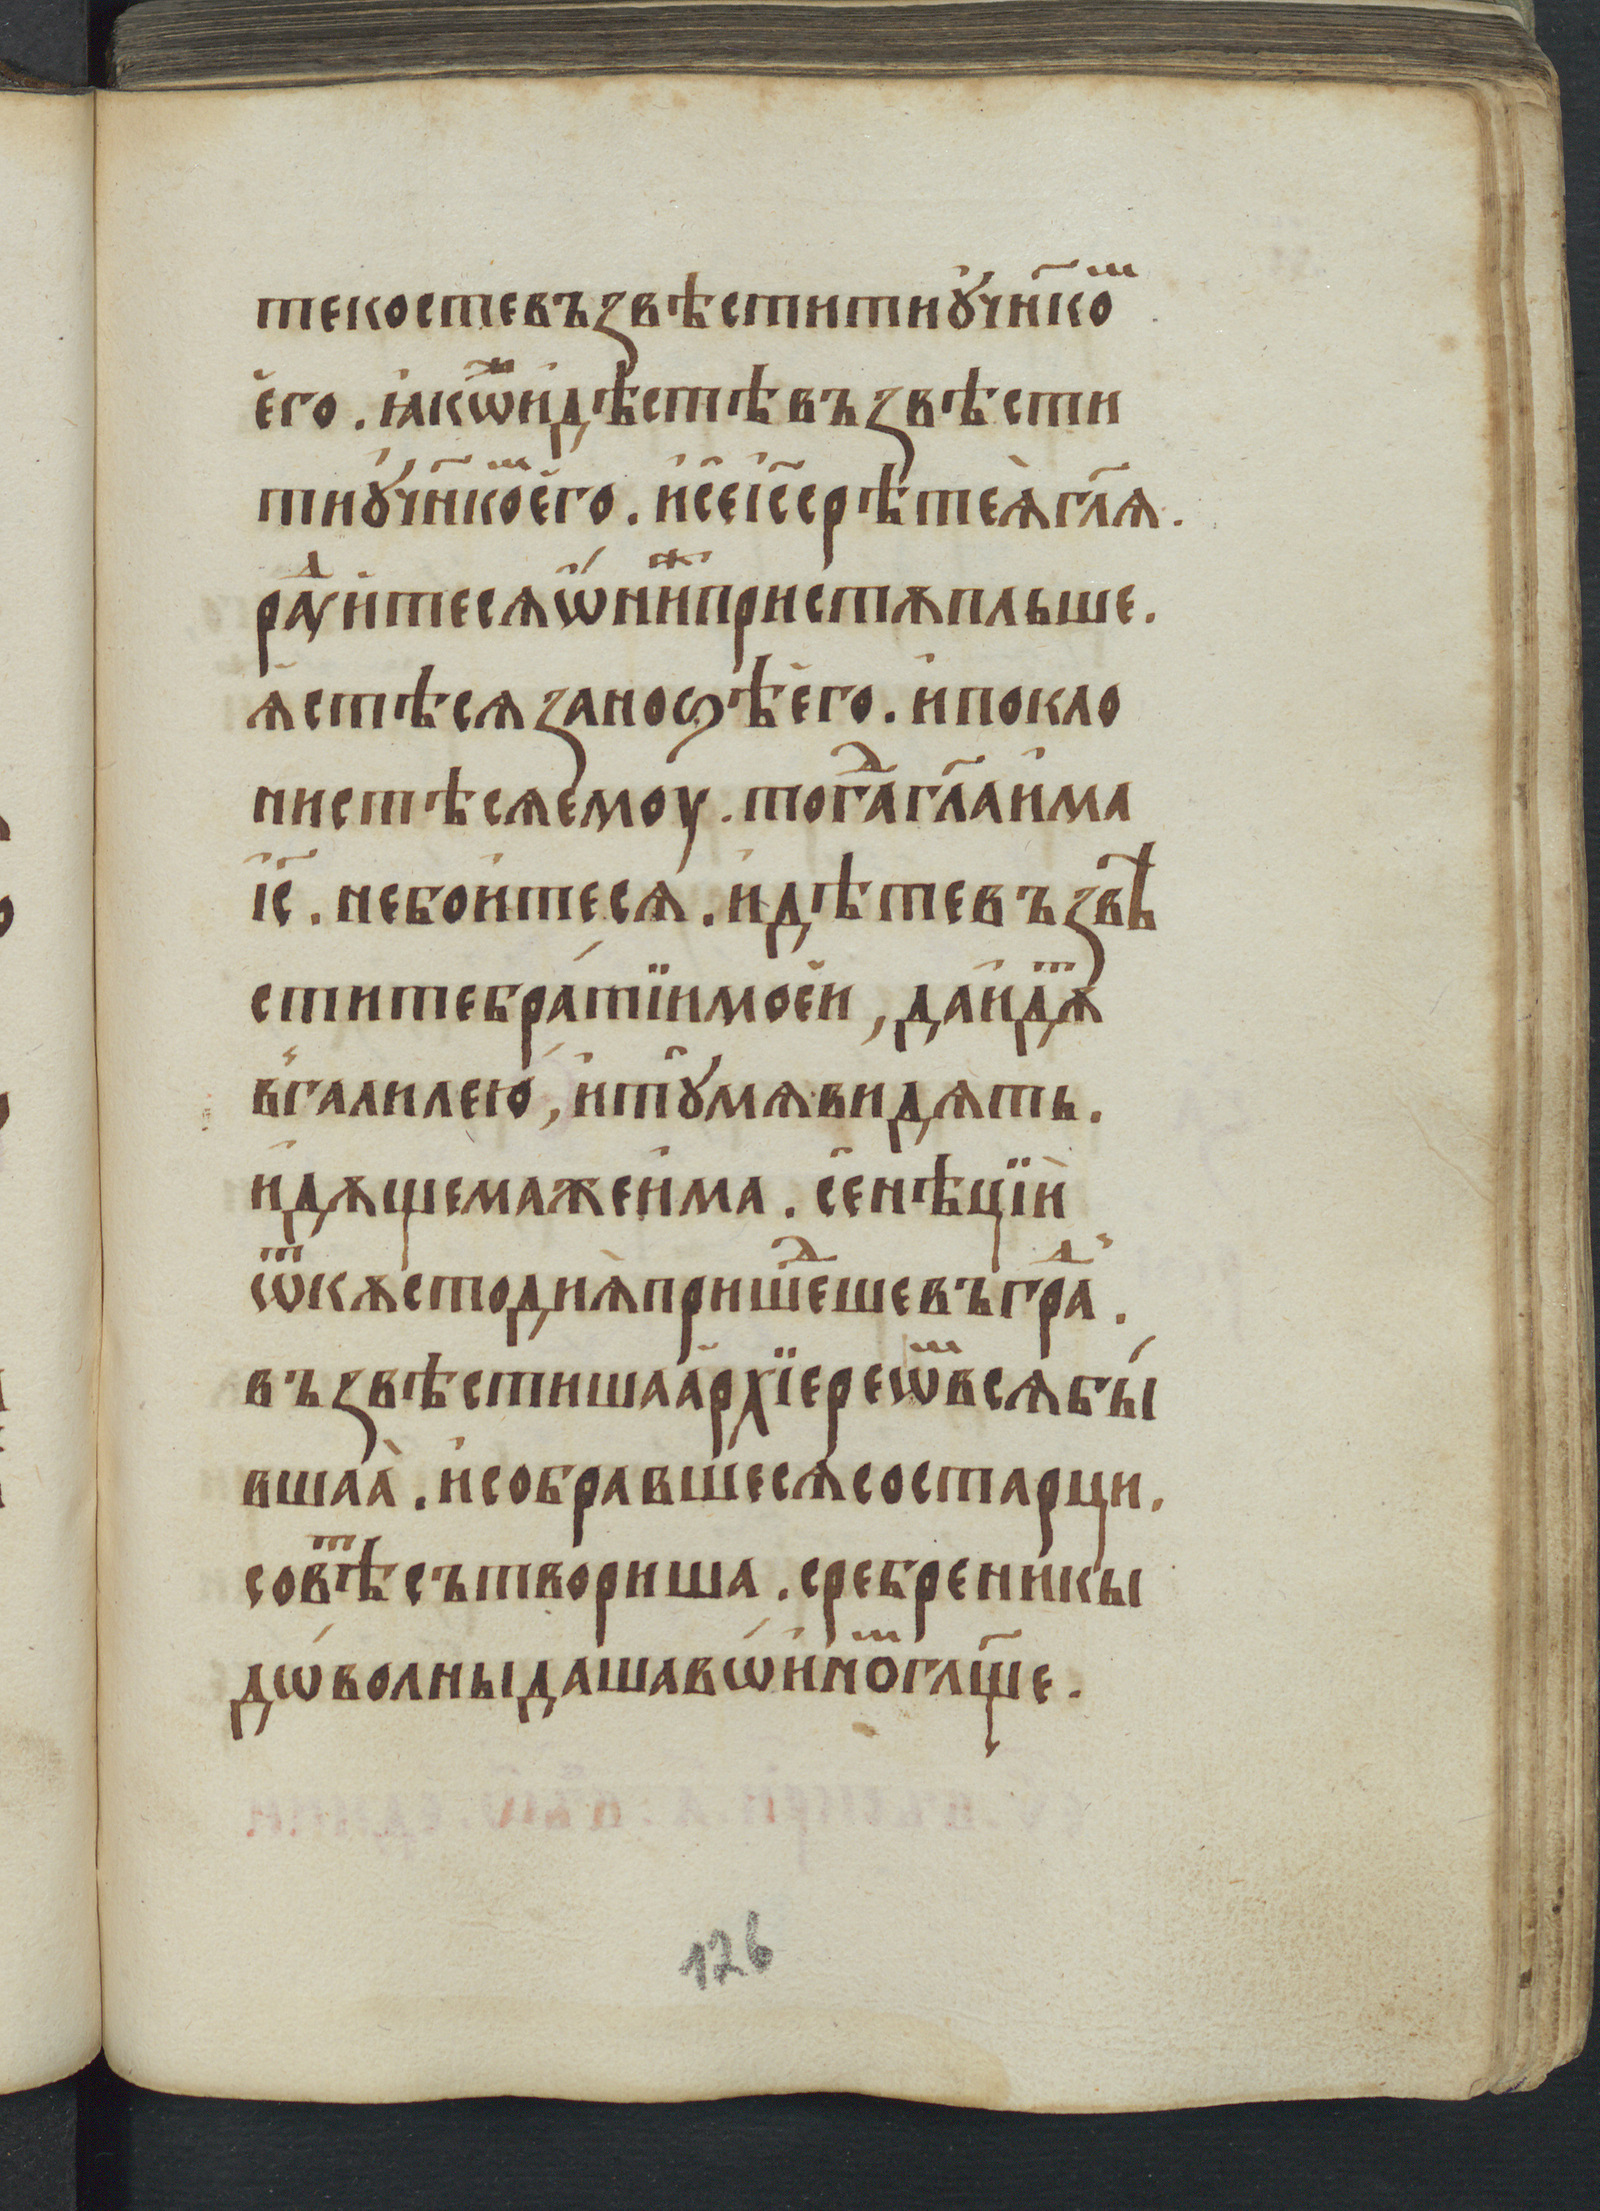 текостевъзвѣститиꙋ҆чн҃коⷨ
е҆го. ꙗ҆коⷤи҆дѣстѣвъзвѣсти
тиꙋ҆чн҃коⷨе҆го. и҆се҆і҆с҃срѣтеѧ҆гл҃ѧ.
раⷣуи҆тесѧѡ҆ниⷤпристѫпльше.
ѧ҆стѣсѧзаноѕѣе҆го. и҆покло
нистѣсѧемоу. тогⷣагл҃аи҆ма
і҆с҃. небоитесѧ. и҆дѣтевъзвѣ
ститебра́тїимоеи҆, даи҆дѫⷮ
вгалилею̀, и҆тꙋ҆мѧвидѧть.
и҆дѫщемажеи҆ма. се҆нѣцїи
ѿкѫстодиѧ҆пришеⷣшевъграⷣ.
възвѣстишаа҆рхїереѡⷨвсѧбы́
вшаа҆. и҆собравшесѧсостарци.
совѣⷮсътвориша. сребреникы
дѡ́волныдашавѡ́и҆ноⷨгл҃ще.
126